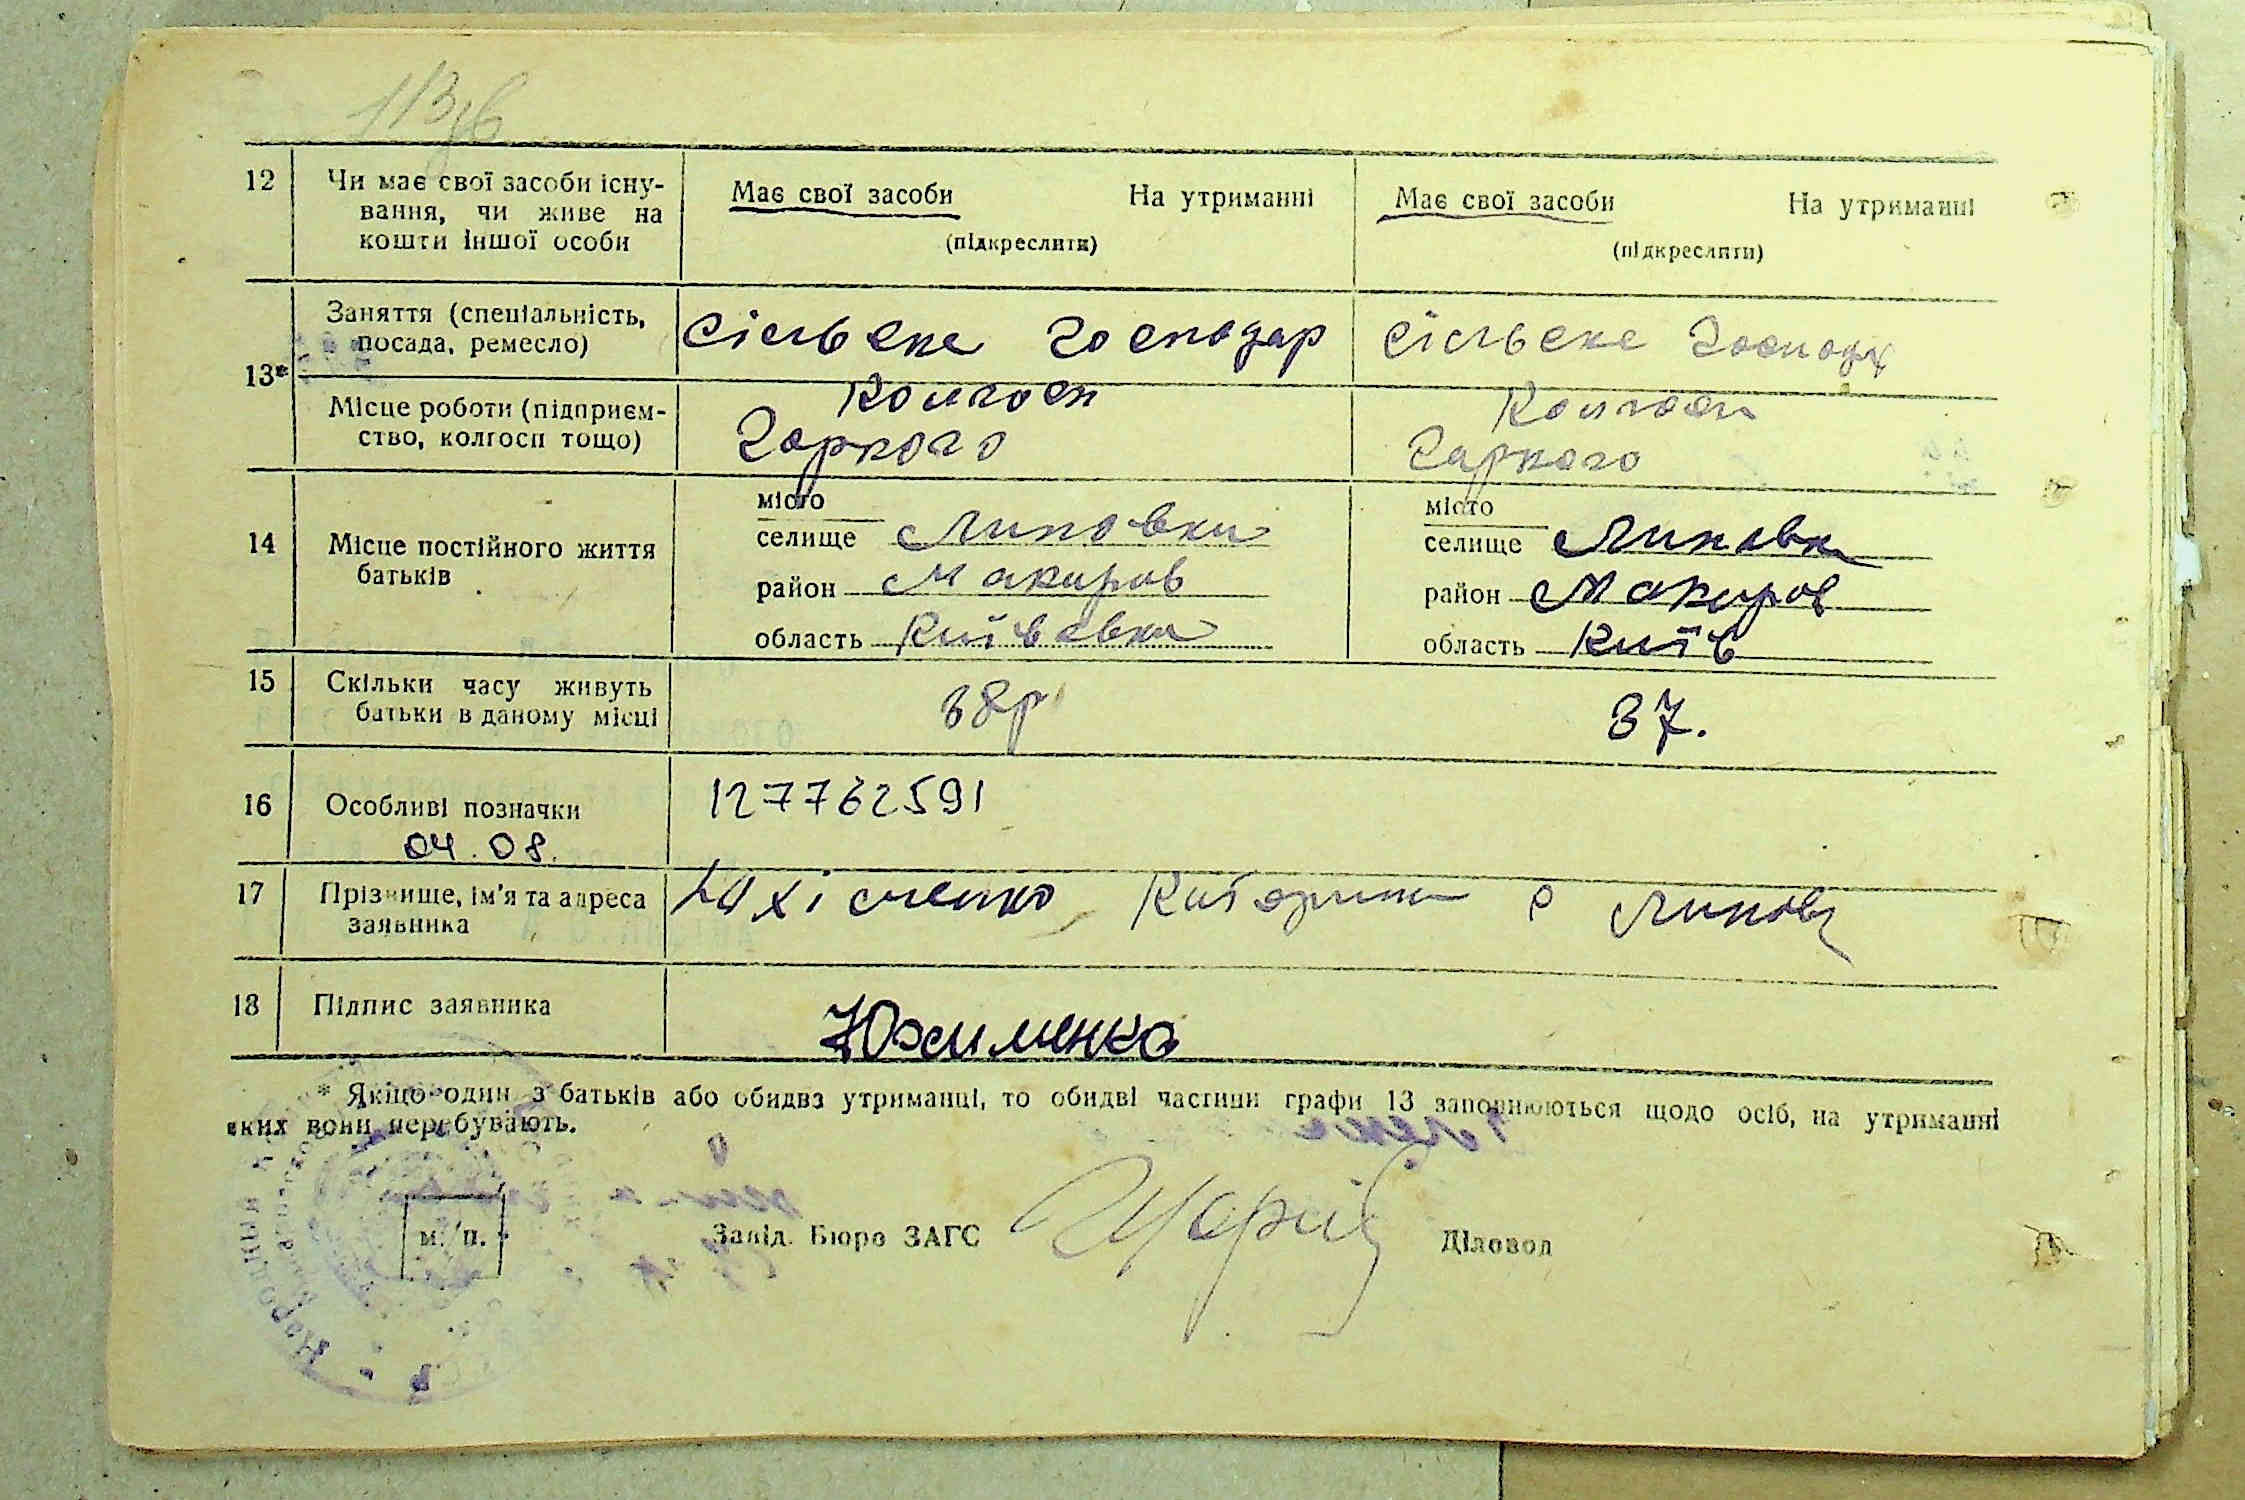 113зв
12 Чи має свої засоби існу-
вання, чи живе на
кошти іншої особи
Має свої засоби На утриманні
(підкреслити)
Має свої засоби На утриманні
(підкреслити)
13*
Заняття (спеціальність,
посада, ремесло)
Сільске господар
Сільске господ
Місце роботи (підприєм-
ство, колгосп тощо)
Колгосп
Горкого
Колгосп
Горкого
14 Місце постійного життя
батьків
місто
селище Липовки
район Макаров
область Київська
місто
селище Липовк
район Макаров
область Київ
15 Скільки часу живуть
батьки в даному місці
38р
37.
16 Особливі позначки
04.08.
127762591
17 Прізвище, ім'я та адреса
заявника
Юхіменко с Липовк
18 Підпис заявника
Юхименко
* Якщо один з батьків або обидва утриманці, то обидві частини графи 13 заповнюються щодо осіб, на утриманні
яких вони перебувають.
м. п.
Завід. Бюро ЗАГС
Діловод